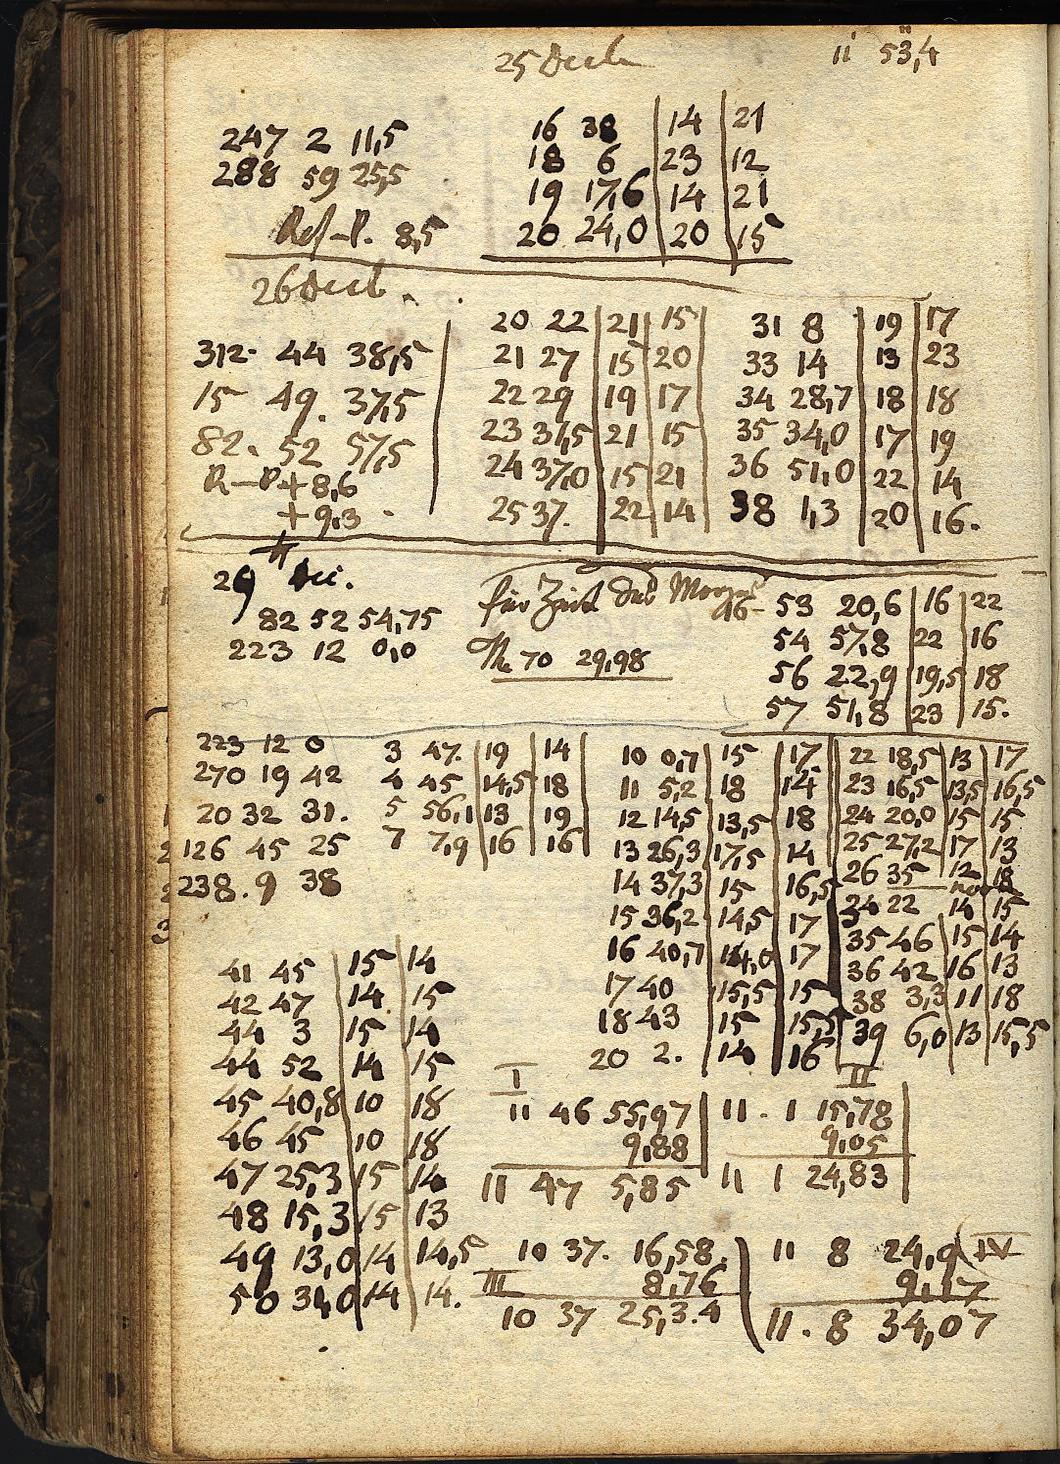 25 Decb 11 53,4
247 2 11,5
288 59 25,5
Ref-P. 8,5
16 38 14 21
18 6 23 12
19 17,6 14 21
20 24,0 20 15
26 Decb.
312 44 38,5
15 49. 37,5
82. 52 57,5
R-P+8,6
+9,3
20 22 21 15
21 27 15 20
22 29 19 17
23 31,5 21 15
24 37,0 15 21
25 37. 22 14
31 8 19 17
33 14 13 23
34 28,7 18 18
35 34,0 17 19
36 51,0 22 14
38 1,3 20 16.
29 Dec.
82 52 54,75
223 12 0,0
für Zeit des
Th. 70 29,98
46- 53 20,6 16 22
54 57,8 22 16
56 22,9 19,5 18
57 51,8 23 15.
223 12 0
270 19 42
20 32 31.
126 45 25
238. 9 38
3 47. 19 14
4 45 14,5 18
5 56,1 13 19
7 7,9 16 16
10 0,7 15 17
11 5,2 18 14
12 14,5 13,5 18
13 26,3 17,5 14
14 37,3 15 16,5
15 36,2 14,5 17
16 40,7 14,0 17
17 40 15,5 15
18 43 15 15,5
20 2. 14 16
22 18,5 13 17
23 16,5 13,5 16,5
24 20,0 15 15
25 27,2 17 13
26 35 12 18
24 22 14 15
35 46 15 14
36 42 16 13
38 3,3 11 18
39 6,0 13 15,5
41 45 15 14
42 47 14 15
44 3 15 14
44 52 14 15
45 40,8 10 18
46 45 10 18
47 25,3 15 14
48 15,3 15 13
49 13,0 14 14,5
50 31,0 14 14.
I
11 46 55,97
9,88
11 47 5,85
II
11. 1 15,78
9,05
11 1 24,83
10 37. 16,58.
III 8,76
10 37 25,3.4
11 8 24,9 IV
9,17
11. 8 34,07